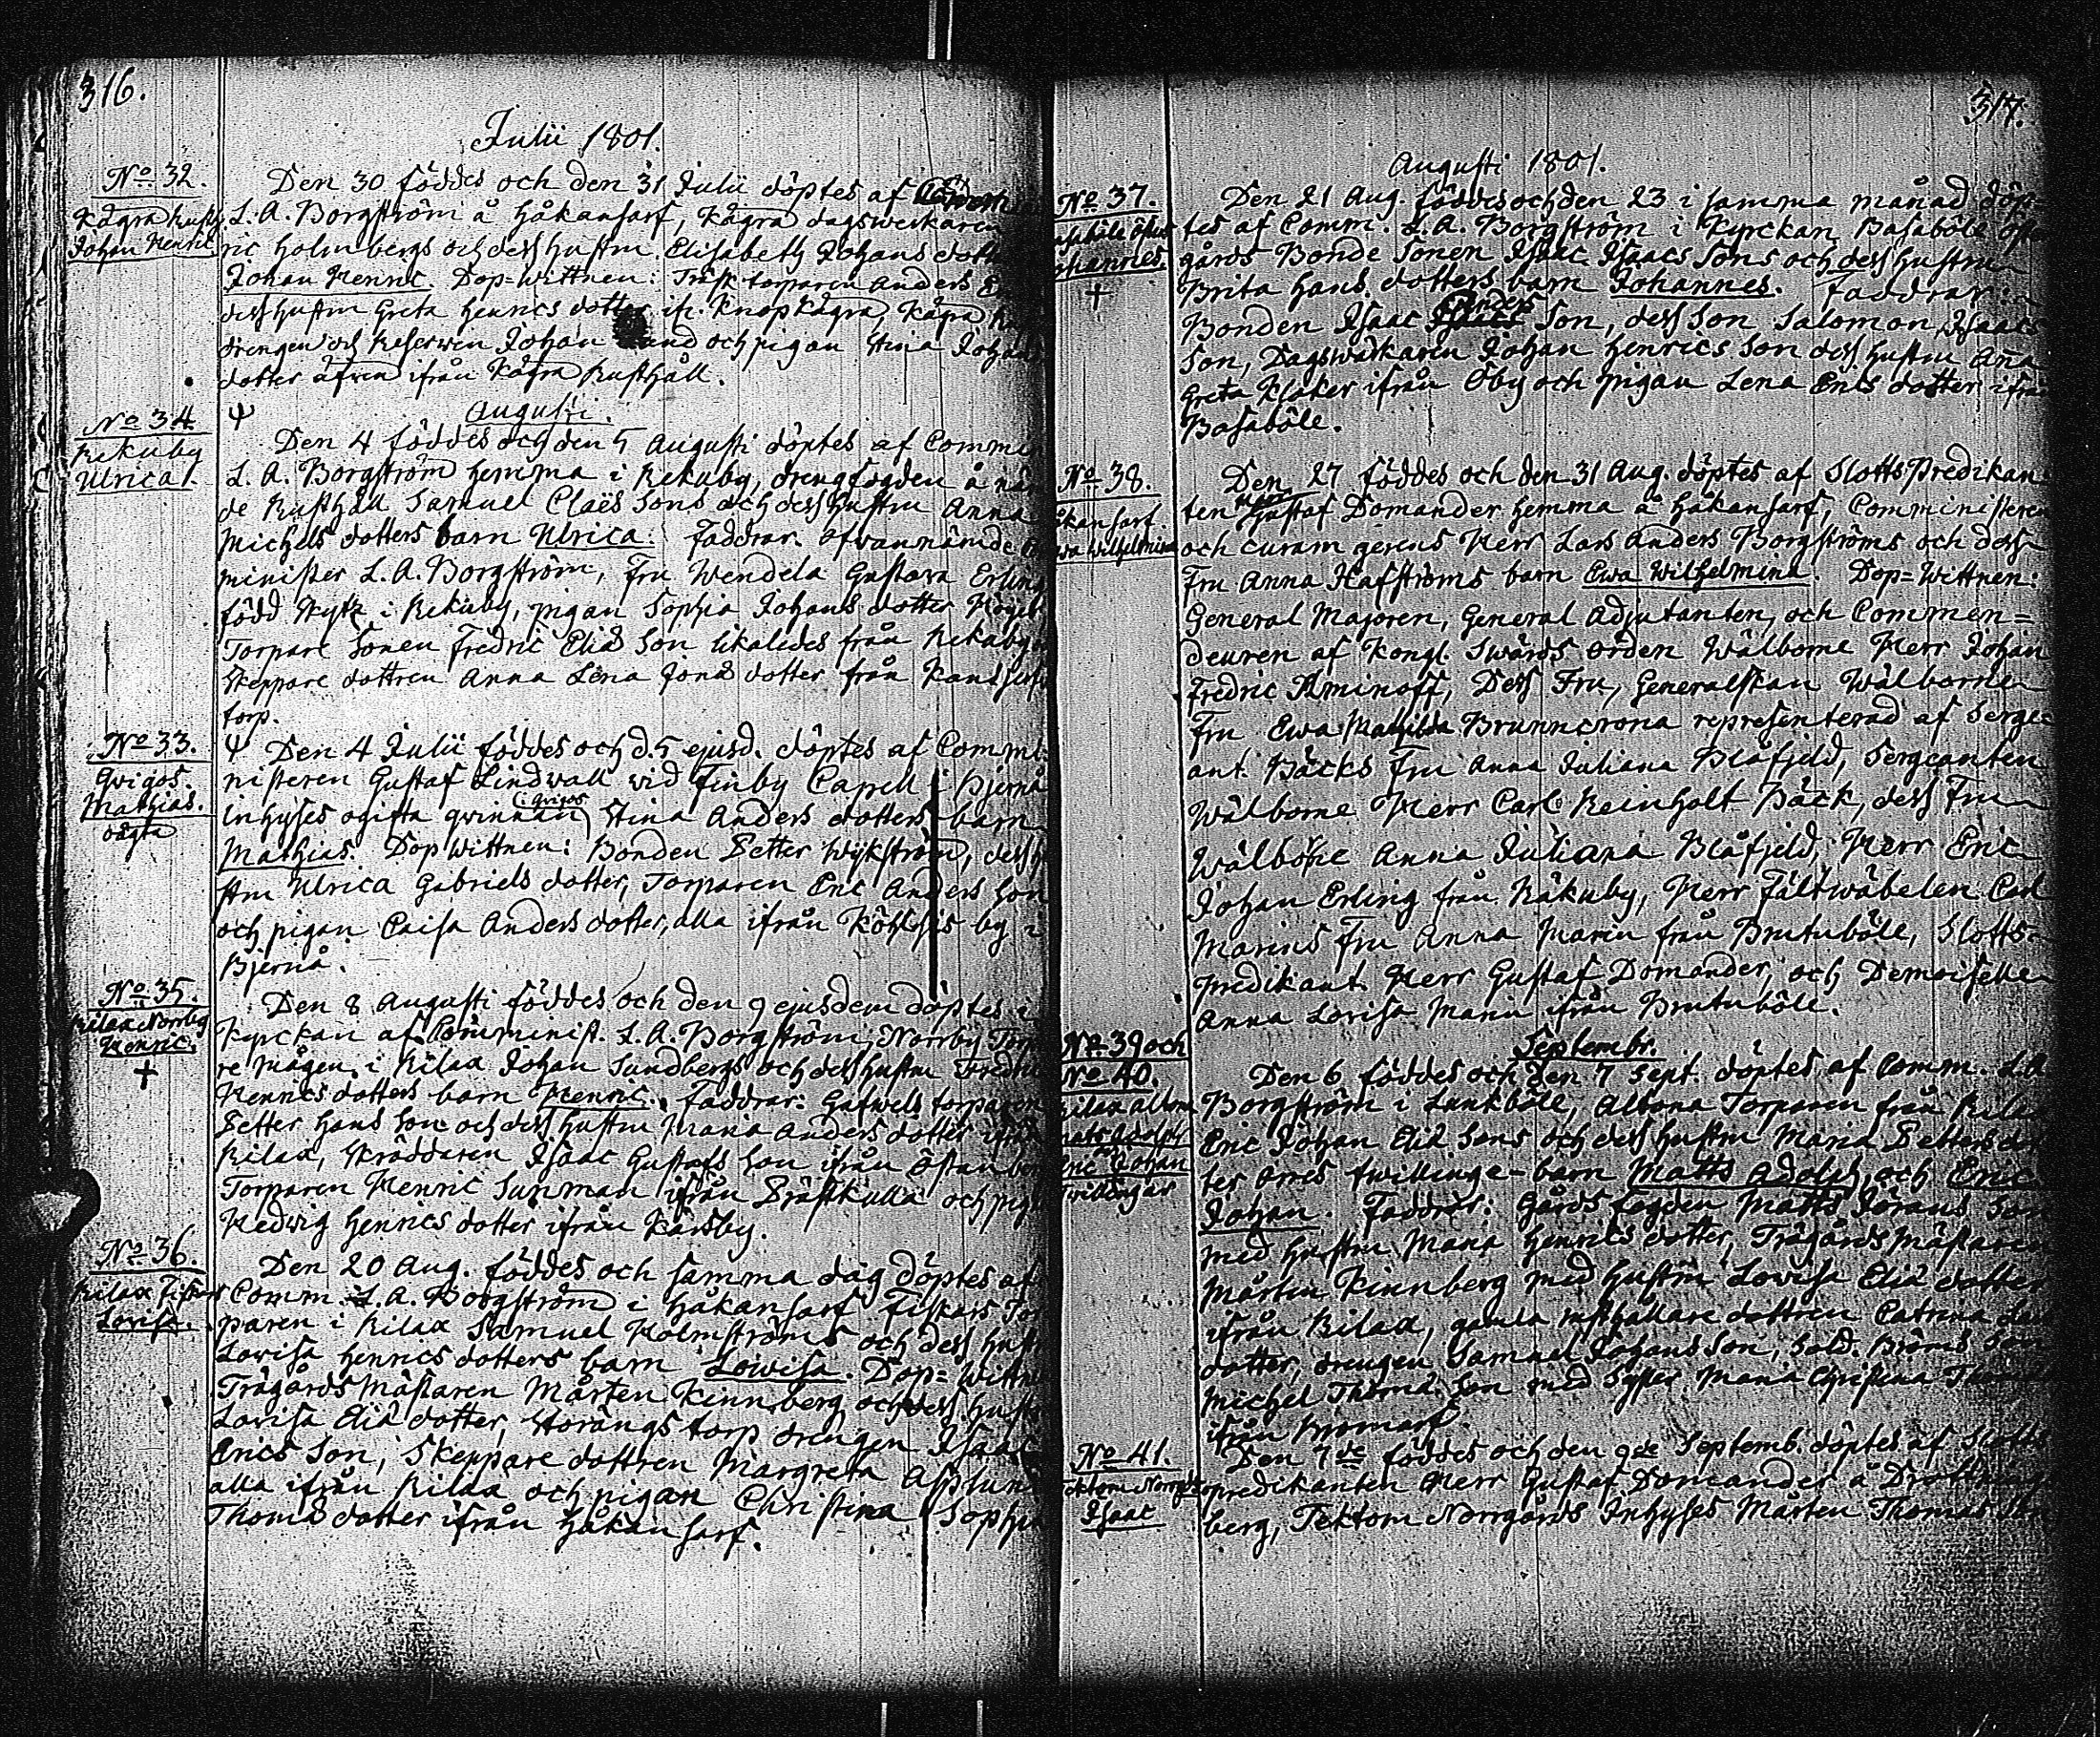 316.
Julii 1801.
No 32.
Kågra Rusth.
Johan Henric.
Den 30 föddes och den 31 Julii döptes af
L. A. Borgström å Håkansarf, Kågra dagswerkaren
ric Holmbergs och dess hustru Elisabeth Johans dott
Johan Henric. Dop-wittnen: Träsk torparen Anders
dess hustru Greta Henrics dotter if. Knopkågra, Kågra
drengen och Reserwen Johan och pigan Stina Johans
dotter äfwen ifrån Kågra Rusthåll.
Augusti.
No 34.
Rekuby
Ulrica.
Ψ
Den 4 föddes och den 5 Augusti döptes af Commi
L. A. Borgström hemma i Rekuby, drengfogden å näm
de Rusthåll Samuel Claës Sons och dess hustru Anna
Michels dotters barn Ulrica. Faddrar. Ofwannämde
minister L. A. Borgström, Fru Wendela Gustava Erling
född Kytz i Rekuby, pigan Sophia Johans dotter
Torpare Sonen Fredric Eliæ Son likaledes från Rekuby
Skeppare dottren Anna Lena Jonæ dotter från
torp.
No 33.
Qvigos
Mathias.
oägta
Ψ Den 4 Julii föddes och d. 5 ejusd. döptes af Commi-
nisteren Gustaf Lindwall wid Finby Capell i Bjerno
Inhyses ogifta qwinnan i Qvigos Stina Anders dotters barn
Mathias. Dop wittnen: Bonden Petter Wykström, dess hu
stru Ulrica Gabriels dotter, Torparen Eric Anders Son
och pigan Caisa Anders dotter, alla ifrån by i
Bjernå.
No 35.
Rilax Norrby
Henric.
+
Den 8 Augusti föddes och den 9 ejusdem döptes i
Kyrckan af Comminist. L. A. Borgström, Norrby Torpa
re mågen i Rilax Johan Sundbergs och dess hustru
Henrics dotters barn Henric. Faddrar: torparen
Petter Hans Son och dess hustru Maria Anders dotter ifrån
Rilax, Skräddaren Isaac Gustafs Son ifrån Östanberg
Torparen Henric Sunman ifrån Prästkulla och pigan
Hedwig Henrics dotter ifrån Kånsby.
No 36.
Rilax Fiskars
Lovisa.
Den 20 Aug. föddes och samma dag döptes af
Comm. L. A. Borgström i Håkansarf Fiskars Tor
paren i Rilax Samuel Holmströms och dess hustru
Lovisa Henrics dotters barn Lowisa. Dop-wittnen
Trägårds Mästaren Mårten Kinnberg och dess hustru
Lovisa Eliæ dotter, Storängs torp drengen Isaac
Erics Son, Skeppare dottren Margreta Asplund
alla ifrån Rilax och pigan Christina Sophia
Thomæ dotter ifrån Håkansarf.
317.
Augusti 1801.
No 37.
Johannes
+
Den 21 Aug. föddes och den 23 i samma månad döp-
tes af Comm. L. A. Borgström i Kyrckan Basaböle Öster
gårds Bonde Sonen Isaac Isaacs Sons och dess hustru
Brita Hans dotters barn Johannes. Faddrar:
Bonden Isaac Son, dess Son Salomon Isaacs
Son, Dagswärkaren Johan Henrics Son dess hustru Anna
Greta Kloker ifrån Öby och pigan Lena Erics dotter ifrån
Basaböle.
No 38.
Håkansarf.
Ewa Wilhelmina
Den 27 föddes och den 31 Aug. döptes af Slotts Predikan-
ten Herr Gustaf Domander hemma å Håkansarf, Comministeren
och curam gerens Herr Lars Anders Borgströms och dess
Fru Anna Hafströms barn Ewa Wilhelmina. Dop-Wittnen:
General Majoren, General Adjutanten, och Commen=
deuren af Kongl. Swärds Orden Wälborne Herr Johan
Fredric Aminoff, Dess Fru, Generalskan Wälborne
Fru Ewa Mathilda Brunncrona representerad af Serge-
ant. Bäcks Fru Anna Juliana Blåfjeld, Sergeanten
Wälborne Herr Carl Reinholt Bäck, dess Fru
Wälborne Anna Juliana Blåfjeld, Herr Eric
Johan Erling från Räkuby, Herr Fältwäbelen Carl
Marins Fru Anna Marin från Brutuböle, Slotts-
Predikant Herr Gustaf Domander, och Demoiselle
Anna Lovisa Marin ifrån Brutuböle.
Septembr.
No 39 och
No 40.
Rilax Altona
Matts Adolph
Eric Johan
Twillingar
Den 6 föddes och den 7 Sept. döptes af Comm. L. A.
Borgström i Lunkböle, Altona Torparen från Rilax
Eric Johan Eliæ Sons och dess hustru Maria Petters dot
ters twillinge-barn Matts Adolph och Eric
Johan. Faddrar: Gårds fogden Matts Jörans Son
med hustru Maria Henrics dotter, Trägårds Mästaren
Mårten Kinnberg med hustru Lovisa Eliæ dotter
ifrån Rilax, gamla rusthållare dottren Catrina
dotter, drengen Samuel Johans Son, Sold. Bröms Son
Michel Thomæ Son med Syster Maria Christina
ifrån Bromarf.
No 41.
Tektom Norrgårds
Isaac
Den 7de föddes och den 9de Septemb. döptes af Slotts
predikanten Herr Gustaf Domander å Drottning
berg, Tektom Norrgårds Inhyses Mårten Thomas Son